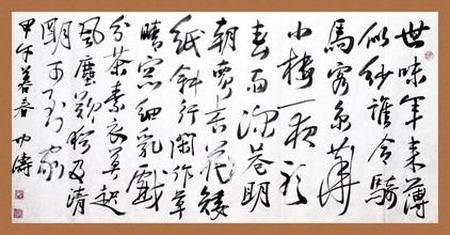 世味年来薄
似紗誰令騎
馬客京華
小楼一夜聽
春雨深巷明
朝賣杏花矮
紙斜行閑作草
晴窗細乳戲
分茶素衣莫起
風塵歎猶及清
明可到家
甲午暮春